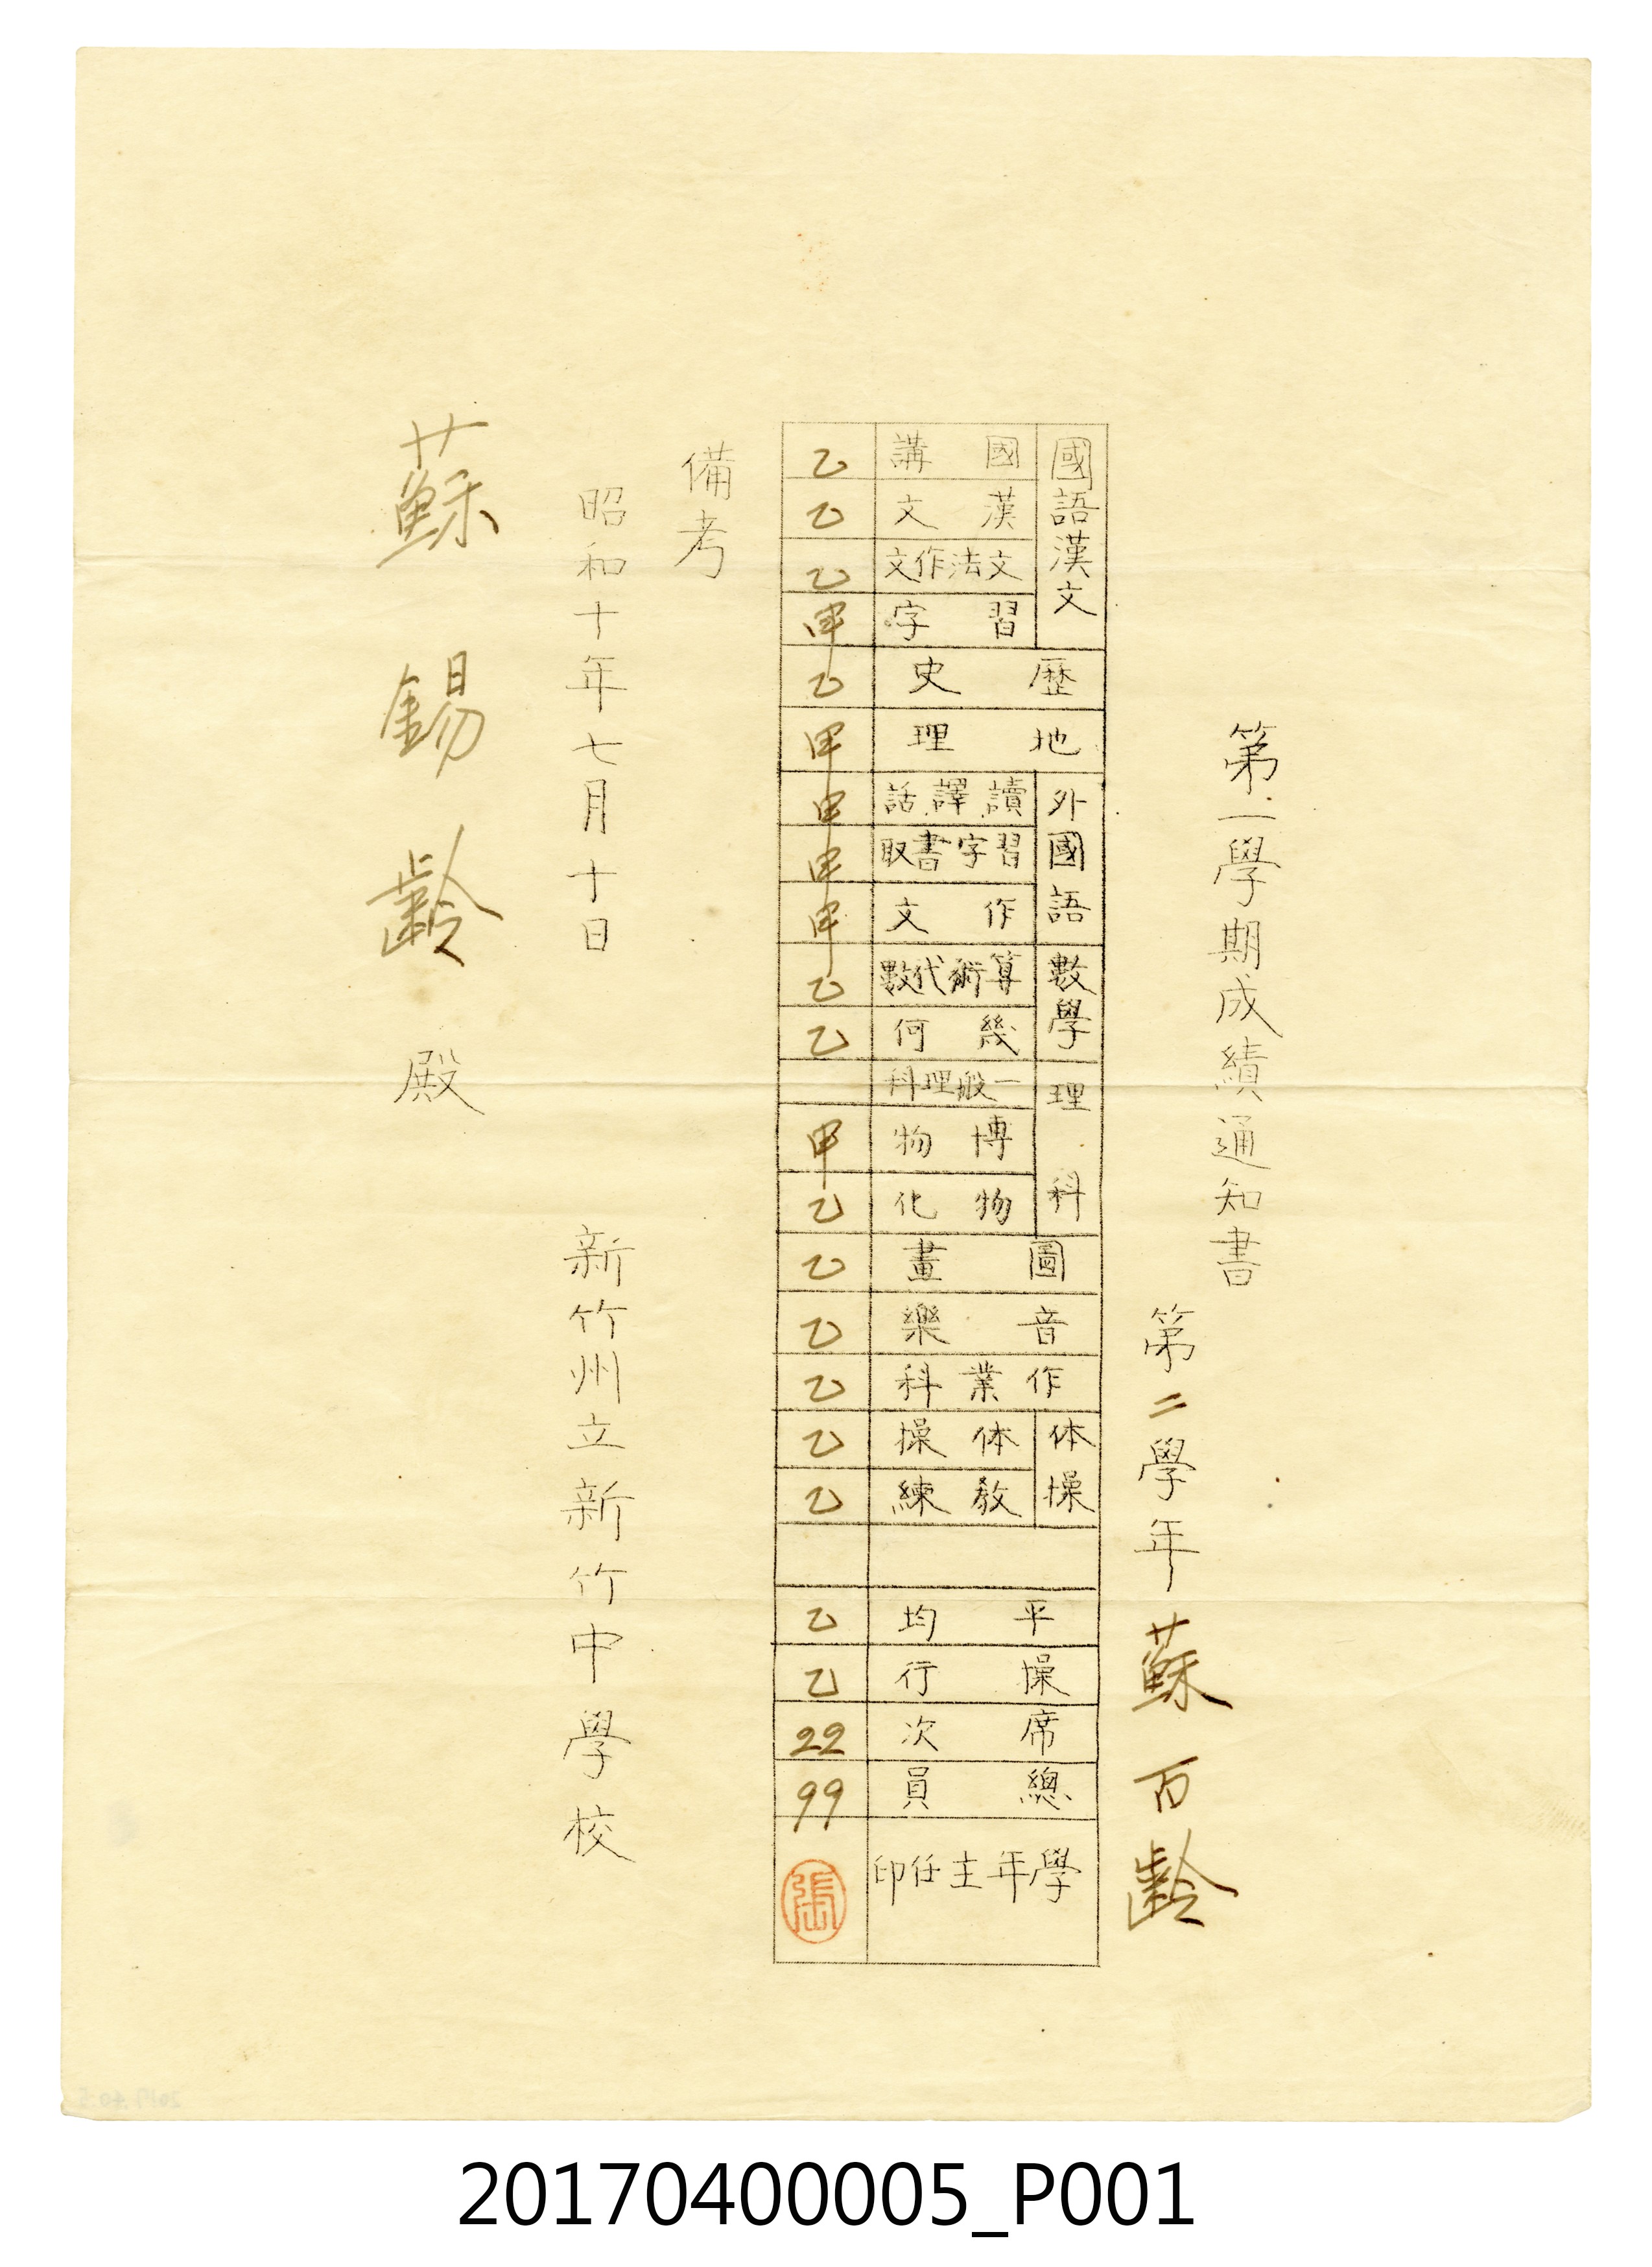 第一學期成績通知書
第二學年 蘇百齡
國語漢文 國講 乙
漢文 乙
文法作文 乙
習字 甲
歷史 乙
地理 甲
外國語 讀譯話 甲
習字書取 甲
作文 甲
數學 算術代數 乙
幾何 乙
理科 一般理科
博物 甲
物化 乙
圖畫 乙
音樂 乙
作業科 乙
体操 体操 乙
教練 乙
平均 乙
操行 乙
席次 22
總員 99
學年主任印 張
備考
昭和十年七月十日
新竹州立新竹中學校
蘇錫齡殿
20170400005_P001